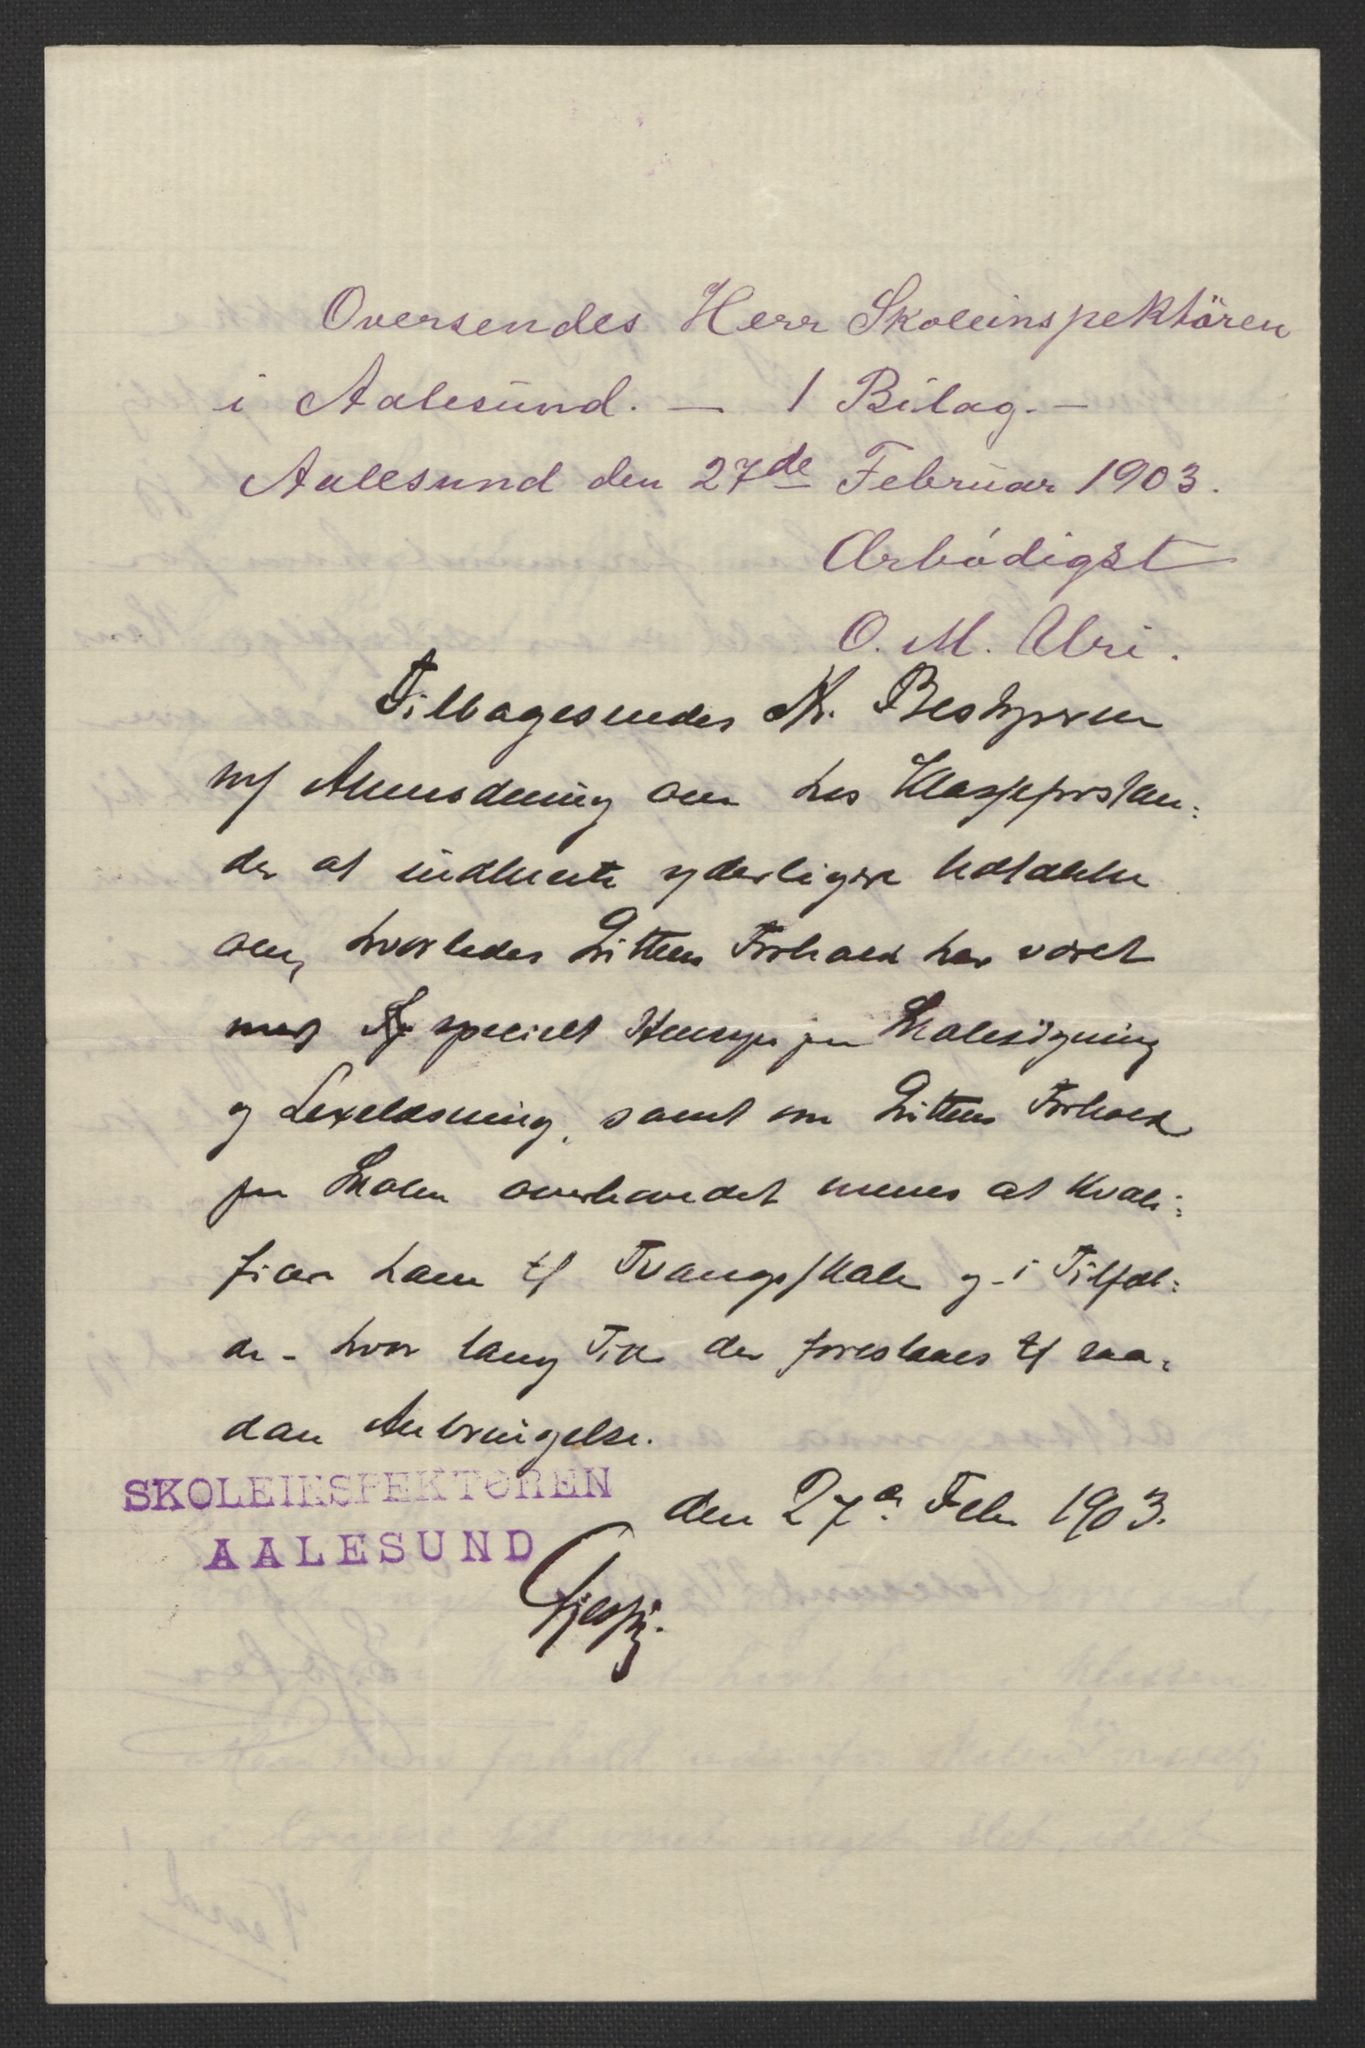 Oversendes Herr Skoleinspektören
i Aalesund. — 1 Bilag. —
Aalesund den 27de Februar 1903.
Ærbödigst
O. M. Uri.
Tilbagesendes Hr. Bestyreren
m/ Anmodning om hos Klasseforstan-
der at indhente yderligere Udtalelse
om, hvorledes Guttens Forhold har været
med specielt Hensyn paa Skolesögning
og Lexelæsning, samt om Guttens Forhold
paa Skolen overhovedet menes at kvali-
ficere ham til Tvangsskole og - i Tilfæl-
de - hvor lang Tid der foreslaaes til saa-
dan Anbringelse.
SKOLEINSPEKTØREN
AALESUND
den 27de Febr 1903.